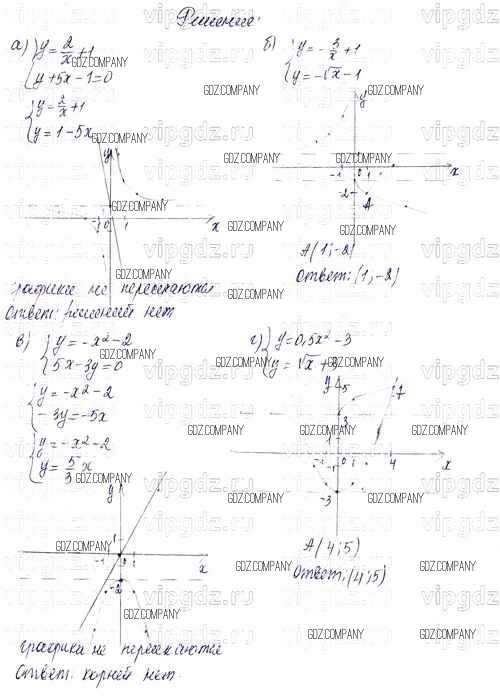 Решение:
а) { y = 2/x + 1
y + 5x - 1 = 0
{ y = 2/x + 1
y = 1 - 5x
y
-1 0 1
x
графики не пересекаются
Ответ: решений нет
б) { y = -3/x + 1
y = -√x - 1
y
-1 1
x
-2
A
A(1; -2)
Ответ: (1, -2)
в) { y = -x² - 2
5x - 3y = 0
{ y = -x² - 2
-3y = -5x
{ y = -x² - 2
y = 5/3 x
y
1
-1 0 1
x
-2
графики не пересекаются
Ответ: корней нет.
г) { y = 0,5x² - 3
y = √x + 3
y 5
3
1
-1 0 1 4
x
-1
-3
A(4; 5)
Ответ: (4; 5)
GDZ.COMPANY
vipgdz.ru